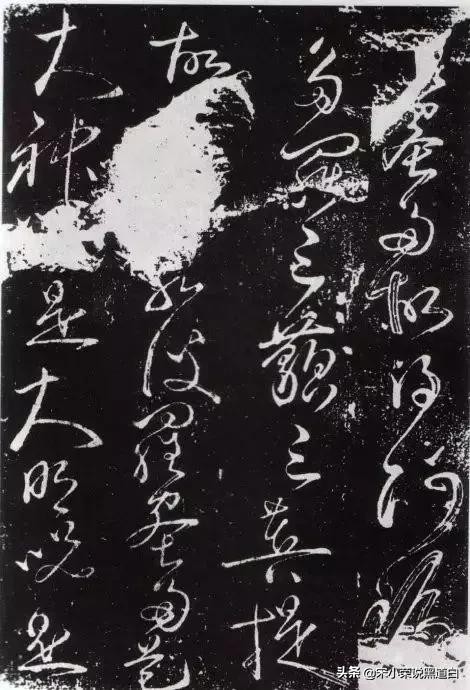 蜜多故得阿耨
多羅三藐三菩提
故若波羅蜜多是
大神是大明咒是
头条 @宋小荣说黑道白